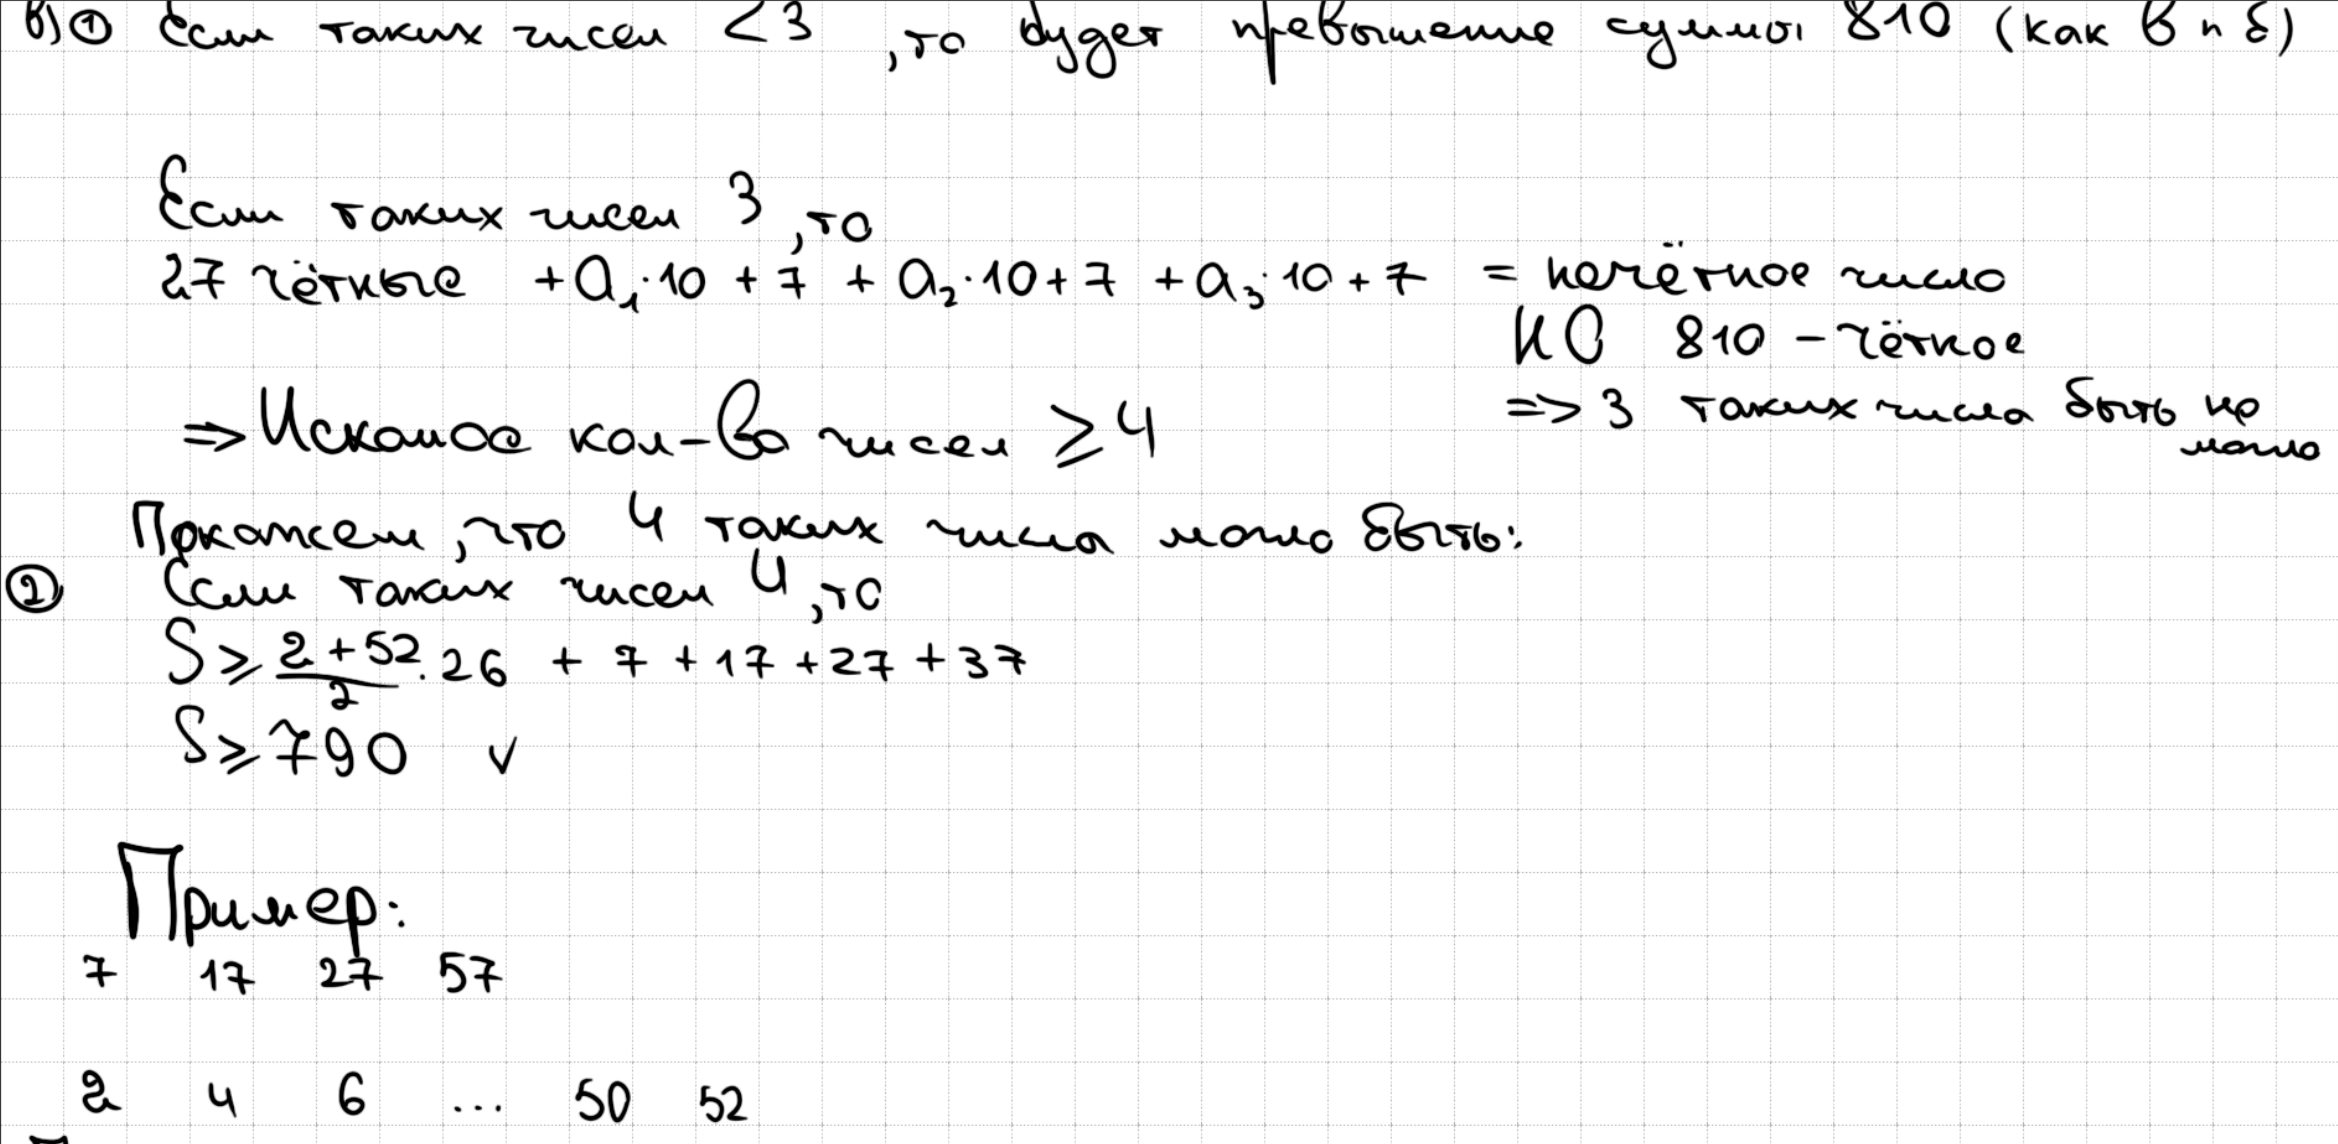 в) ① Если таких чисел < 3, то будет превышение суммы 810 (как в п б)
Если таких чисел 3, то
27 чётные + a₁·10 + 7 + a₂·10 + 7 + a₃·10 + 7 = нечётное число
НО 810 – чётное
=> 3 таких числа быть не могло
=> Искомое кол-во чисел ≥ 4
Покажем, что 4 таких числа могло быть:
② Если таких чисел 4, то
S ≥ (2 + 52)/2 · 26 + 7 + 17 + 27 + 37
S ≥ 790 v
Пример:
7 17 27 57
2 4 6 ... 50 52